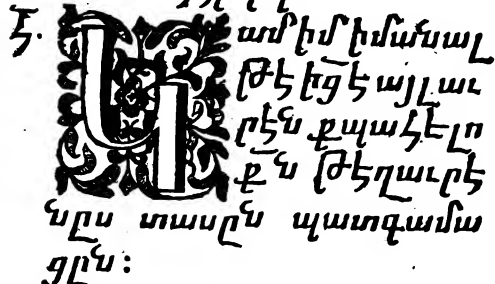 Հ. Կամիմ իմանալ
թէ իցէ այլ աւ
րէնք պահելո
քն թէ զաւրէ
նըս տասըն պատգամա
ցըն: